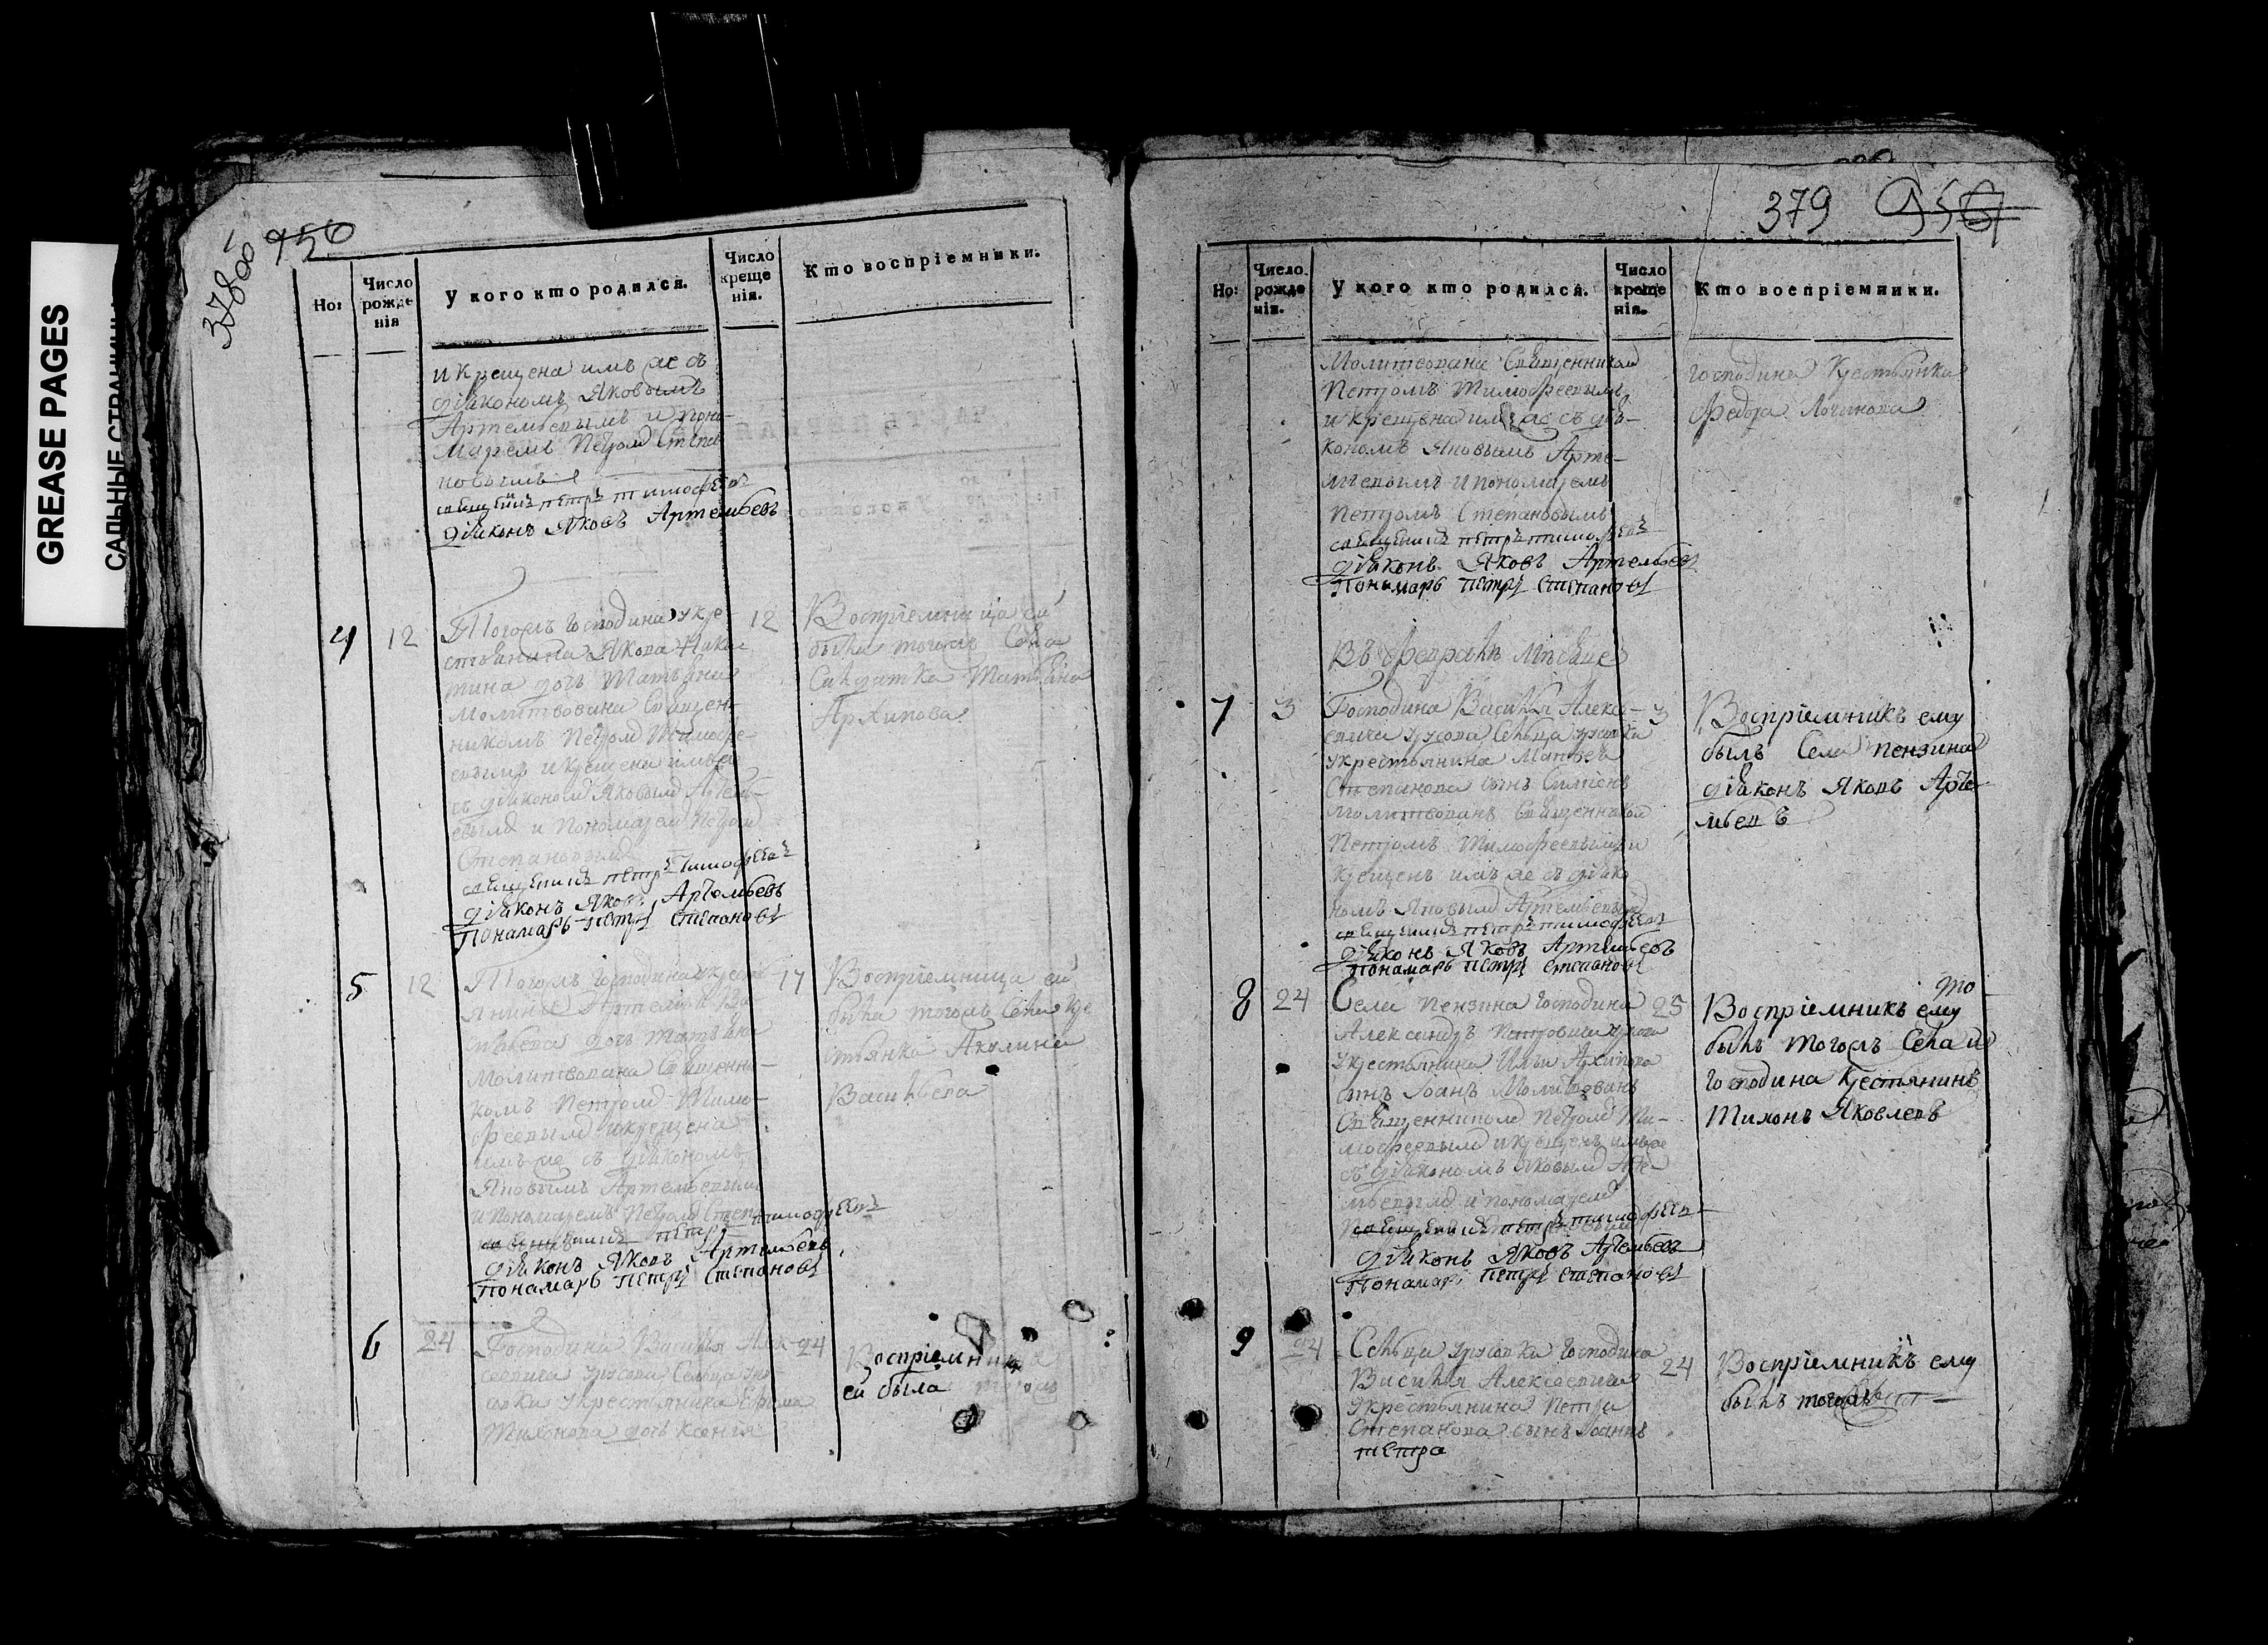 GREASE PAGES
САЛЬНЫЕ СТРАНИЦЫ
378об
956
Но:
Число рожденія
У кого кто родился.
Число крещенія.
Кто воспріемники.
и крещена имъ же съ
діякономъ Яковымъ
Артемьевымъ и поно-
маремъ Петром Степа
новымъ
священникъ петръ тимофеевъ
діяконъ Яковъ Артемьевъ
4
12
Тогожъ господина у кре-
стьянина Якова Ники
тина дочь Татьяна
Молитвована Священ-
никомъ Петром Тимофе-
евымъ и крещена имъ же
съ діяконом Яковым Артемь-
евым и пономарем Петром
Степановым
священникъ петръ тимофеевъ
діяконъ Яковъ Артемьевъ
Понамарь петръ степановъ
12
Воспріемница ей
была тогожъ Села
Салдатка Татьяна
Архипова
5
12
Тогожъ господина у крестьянина
Артемья Ва-
сильева дочь Татьяна
Молитвована Священни-
комъ Петромъ Тимо-
феевым и крещена
имъ же съ діякономъ
Яковымъ Артемьевымъ
и пономаремъ Петром Степа-
священникъ петръ тимофеевъ
діяконъ Яковъ Артемьевъ
Понамарь петръ степановъ
17
Воспріемница ей
была тогожъ Села кре
стьянка Акулина
Васильева
6
24
Господина Василья Алек-
сеевича Урусова Сельца Уру
совки у крестьянина Ефима
Тихонова дочь Ксенія
24
Воспріемница
ей была тогожъ
379
956
Но:
Число рожденія.
У кого кто родился.
Число крещенія.
Кто воспріемники.
Молитвована Священником
Петромъ Тимофеевымъ
и крещена имъ же съ дія-
кономъ Яковымъ Арте-
мьевымъ и пономаремъ
Петромъ Степановымъ
священникъ петръ тимофеевъ
діяконъ Яковъ Артемьевъ
Понамарь петръ степановъ
господина Крестьянка
Федора Логинова
Въ феврале месяце
7
3
Господина Василья Алексе-
евича Урусова Сельца Урусовки
у крестьянина Матвея
Степанова сынъ Симіонъ
молитвованъ Священником
Петромъ Тимофеевымъ и
крещенъ имъ же съ діяко
номъ Яковым Артемьевым
священникъ петръ тимофеевъ
діяконъ Яковъ Артемьевъ
понамарь петръ степановъ
3
Воспріемникъ ему
былъ Села Пензина
діяконъ Яковъ Арте-
мьевъ
8
24
Села Пензина господина
Александръ Петровича Урусова
у крестьянина Ильи Архипова
сынъ Іоанъ Молитвованъ
Священником Петром Ти-
мофеевым и крещенъ имъ же
съ діякономъ Яковым Арте-
мьевым и пономарем
священникъ петръ тимофеевъ
діяконъ Яковъ Артемьевъ
Понамарь петръ степановъ
25
то
Воспріемникъ ему
былъ тогожъ Села и
господина Крестянинъ
Тихонъ Яковлевъ
9
24
Сельца Урусовки господина
Василья Алексеевича
у крестьянина Петра
Степанова сынъ Іоаннъ
петра
24
Воспріемникъ ему
былъ тогожъ